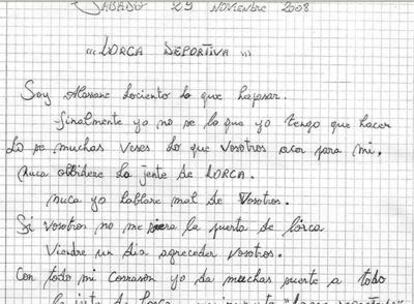 SABADO 29 NOVIEMBRE 2008
"LORCA DEPORTIVA"
Soy Alassane lociento lo que hapasar.
finalmente yo no se lo que yo tengo que hacer
Lo se muchas veses lo que vosotros acer para mi,
nuca olbidere la jente de LORCA.
nuca yo lablare mal de Vosotros.
Si vosotros no me siera la puerta de lorca
Viendre un dia agreceder vosotros.
Con todo mi Corrason yo da muchas suerte a todo
la jente de Lorca